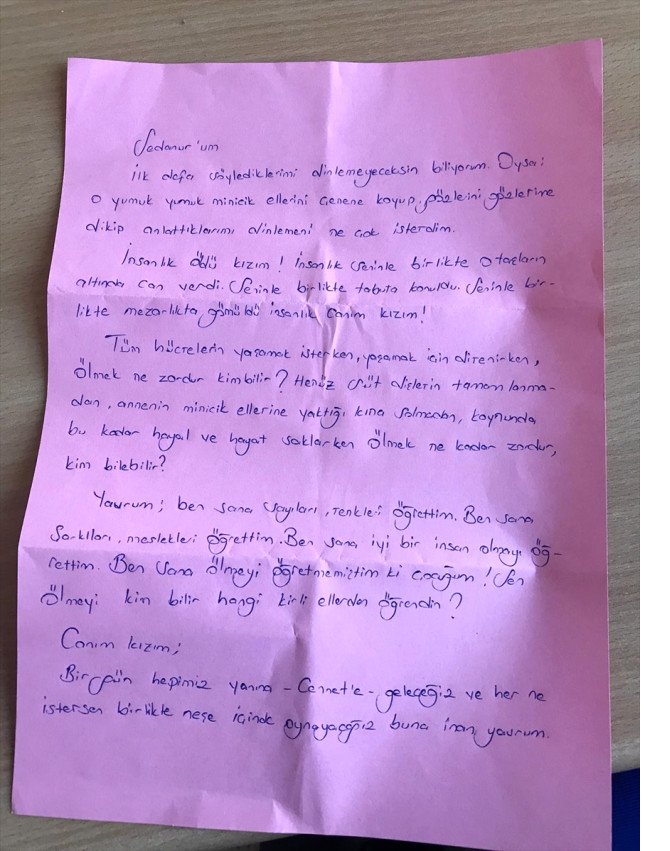 Sedanur'um
İlk defa söylediklerimi dinlemeyeceksin biliyorum. Oysa;
o yumuk yumuk minicik ellerini çenene koyup, gözlerini gözlerime
dikip anlattıklarımı dinlemeni ne çok isterdim.
İnsanlık öldü kızım! İnsanlık seninle birlikte o taşların
altında can verdi. Seninle birlikte tabuta konuldu. Seninle bir-
likte mezarlıkta gömüldü insanlık canım kızım!
Tüm hücrelerin yaşamak isterken, yaşamak için direnirken,
Ölmek ne zordur kimbilir? Henüz süt dişlerin tamamlanma-
dan, annenin minicik ellerine yaktığı kına solmadan, koynunda
bu kadar hayal ve hayat saklarken ölmek ne kadar zordur,
kim bilebilir?
Yavrum; ben sana sayıları, renkleri öğrettim. Ben sana
Şarkıları, meslekleri öğrettim. Ben sana iyi bir insan olmayı öğ-
rettim. Ben sana ölmeyi öğretmemiştim ki çocuğum! Sen
Ölmeyi kim bilir hangi kirli ellerden öğrendin?
Canım kızım;
Bir gün hepimiz yanına - Cennet'e - geleceğiz ve her ne
istersen birlikte neşe içinde oynayacağız buna inan yavrum.